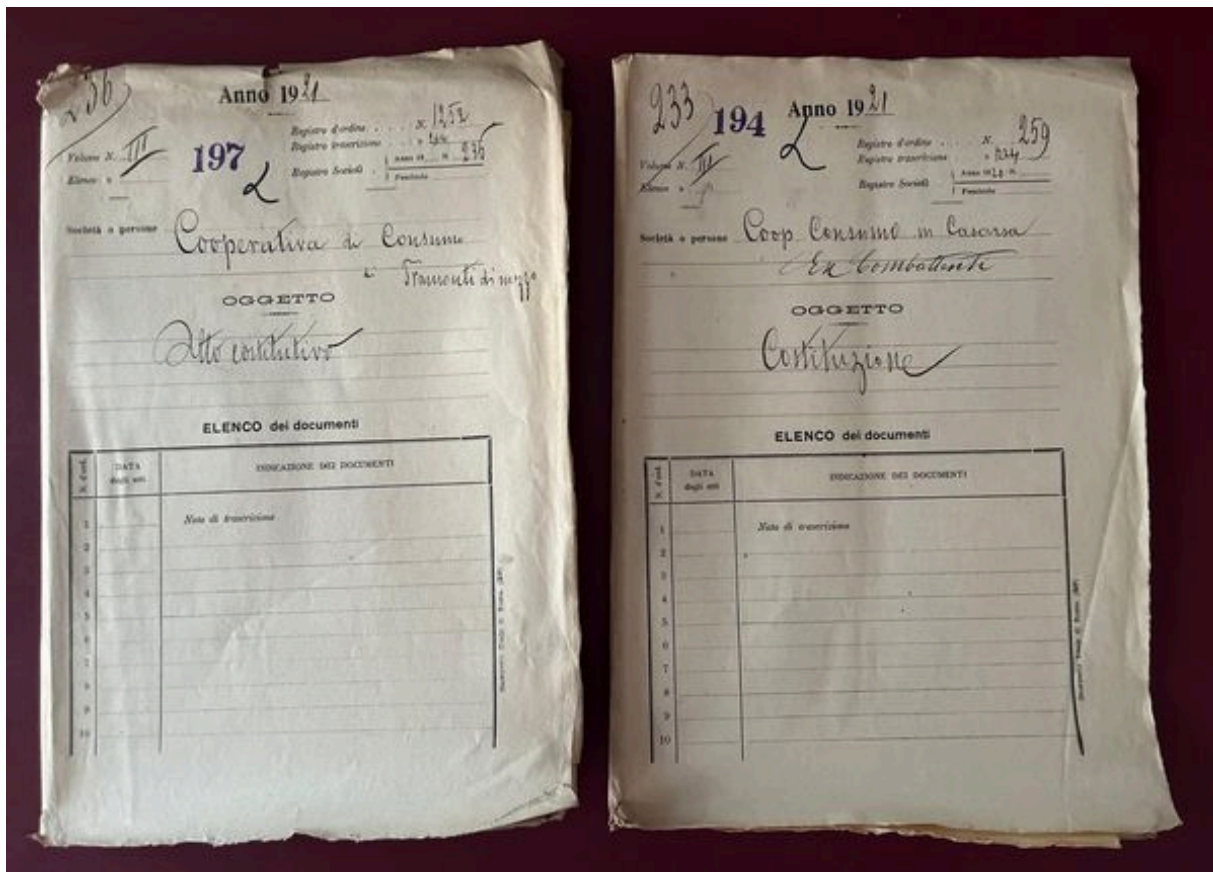 236
Anno 1921
Registro d'ordine . . . . N. 1252
Registro trascrizione . »
Registro Società . Anno 19 N. 236
Fascicolo
Volume N. III
Elenco »
197
Società o persone Cooperativa di Consumo
Tramonti di mezzo
OGGETTO
Atto costitutivo
ELENCO dei documenti
N. d'ord.
DATA
degli atti
INDICAZIONE DEI DOCUMENTI
1 Nota di trascrizione
2
3
4
5
6
7
8
9
10
233
194
Anno 1921
Registro d'ordine . . . . N. 259
Registro trascrizione . »
Registro Società Anno 1920 N.
Fascicolo
Volume N. III
Elenco »
Società o persone Coop Consumo in Casarsa
Ex Combattenti
OGGETTO
Costituzione
ELENCO dei documenti
N. d'ord.
DATA
degli atti
INDICAZIONE DEI DOCUMENTI
1 Nota di trascrizione
2
3
4
5
6
7
8
9
10